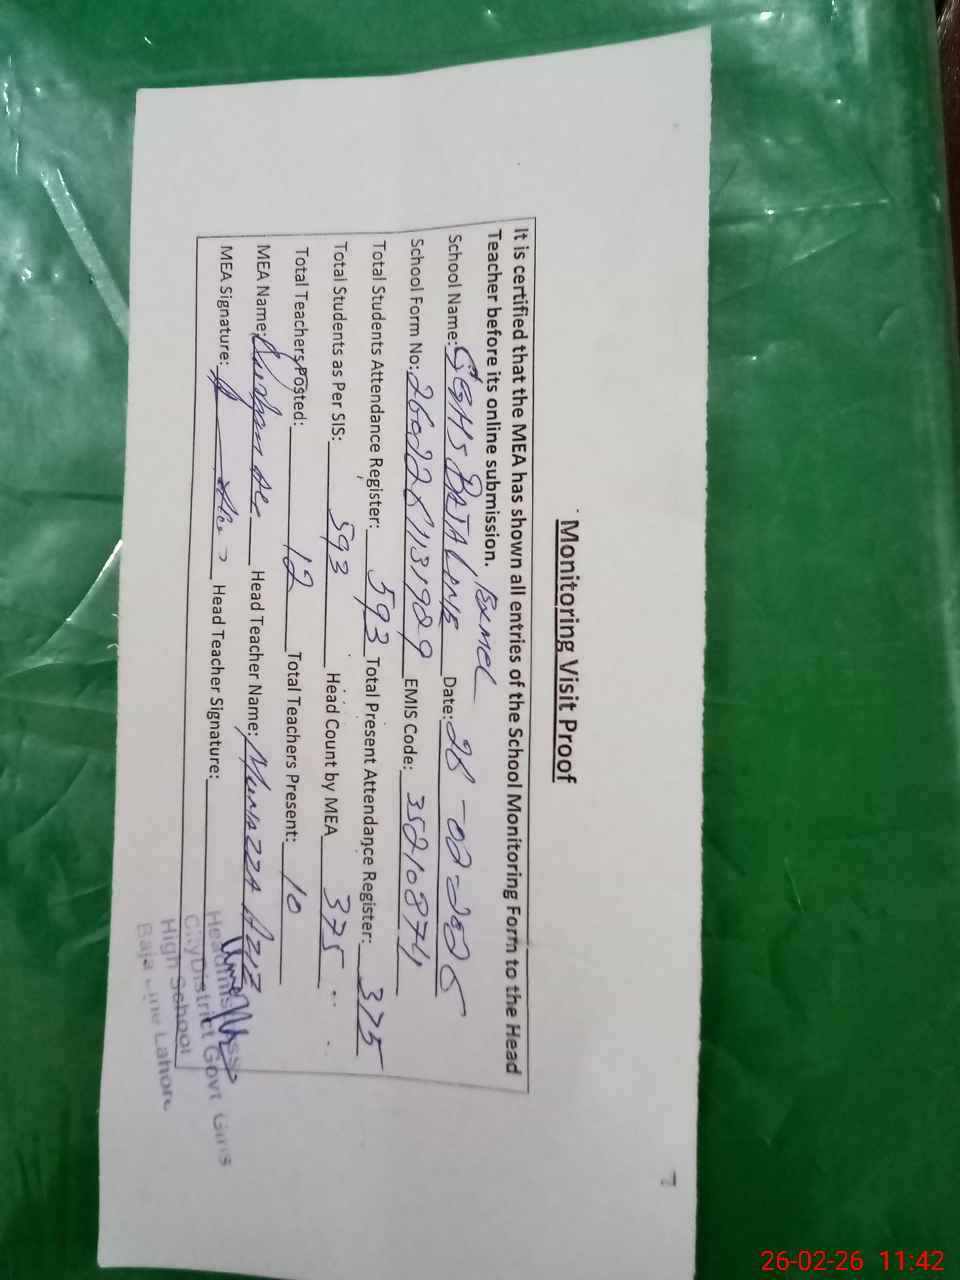 7
Monitoring Visit Proof
It is certified that the MEA has shown all entries of the School Monitoring Form to the Head
Teacher before its online submission.
School Name: Date:
School Form No: EMIS Code: 35210874
Total Students Attendance Register: 593 Total Present Attendance Register: 375
Total Students as Per SIS: 593 Head Count by MEA 375
Total Teachers Posted: 12 Total Teachers Present: 10
MEA Name: Head Teacher Name: Munazza Aziz
MEA Signature: Head Teacher Signature:
Headmistress
City District Govt Girls
High School
Baja Line Lahore
26-02-26 11:42